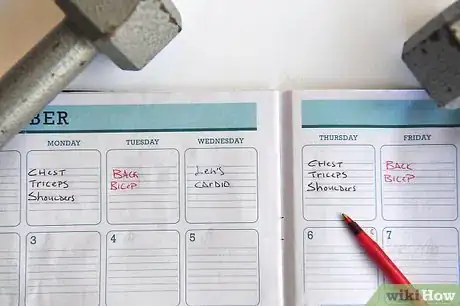 BER
MONDAY TUESDAY WEDNESDAY THURSDAY FRIDAY
CHEST
TRICEPS
Shoulders
BACK
BICEP
Leg's
CARDIO
CHEST
TRICEPS
Shoulders
BACK
BICEP
3 4 5 6 7
wikiHow